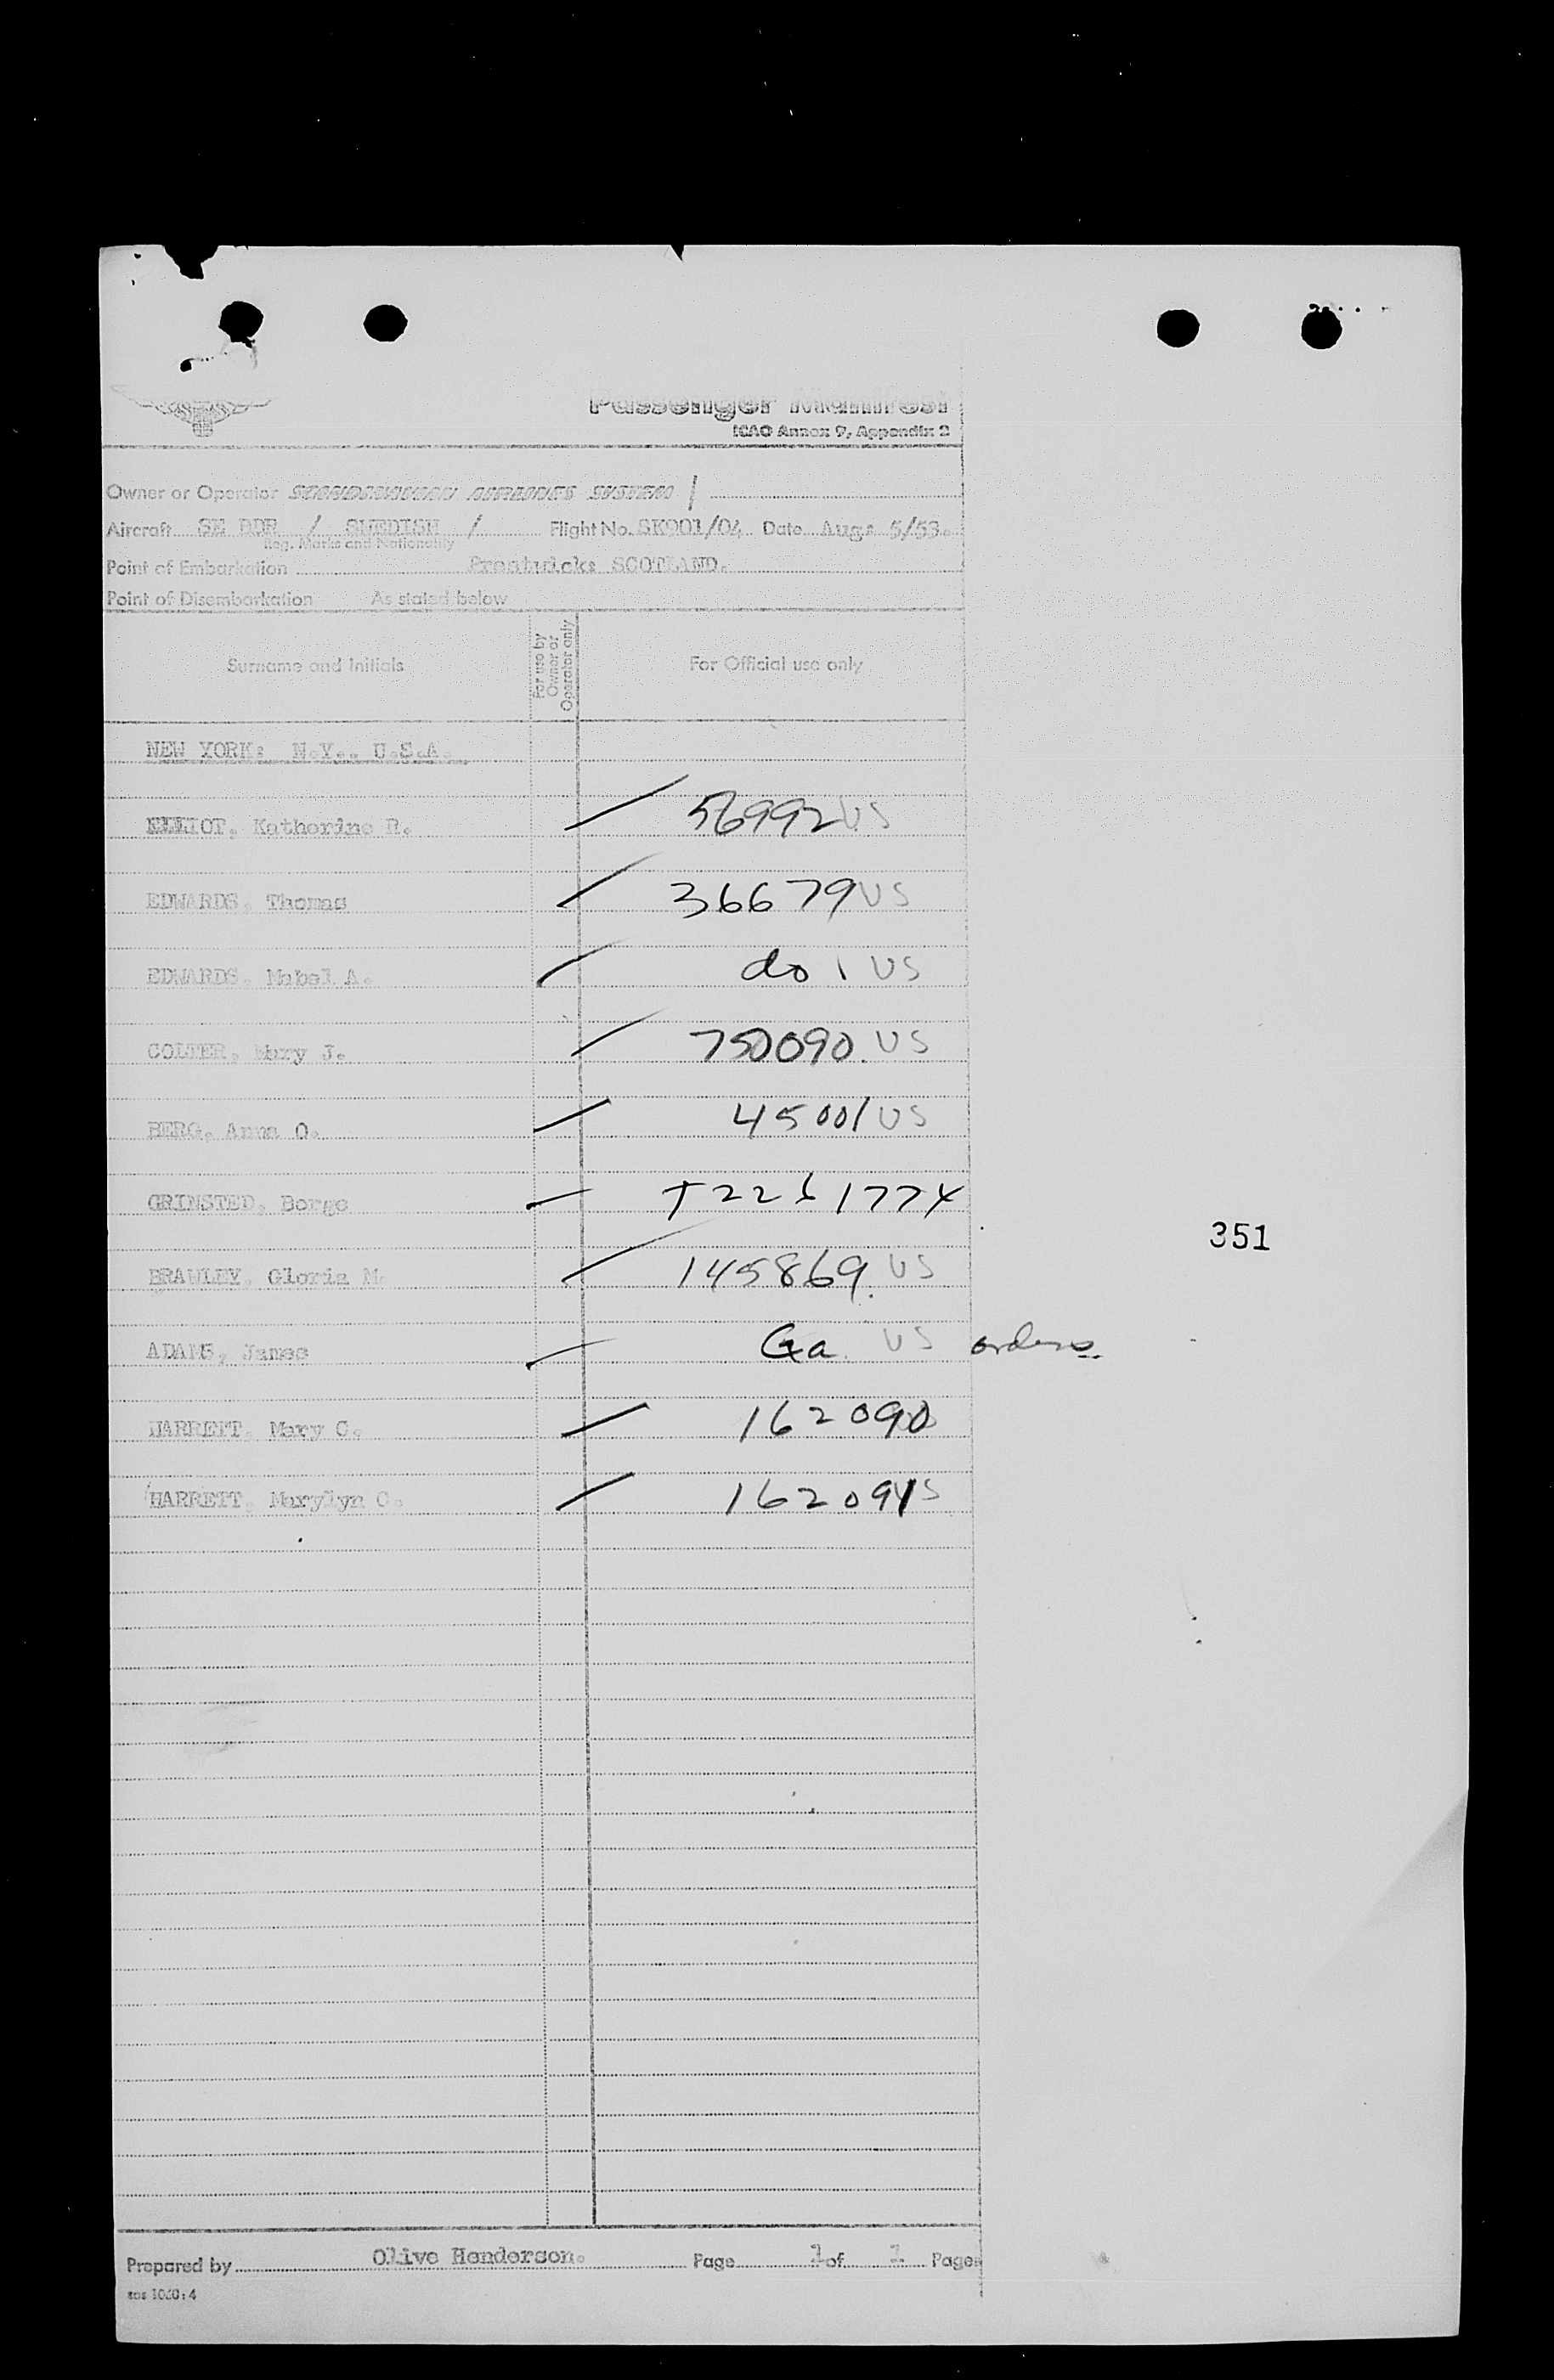 Passenger Manifest
ICAO Annex 9, Appendix 2
Owner or Operator SCANDINAVIAN AIRLINES SYSTEM /
Aircraft SE BDR / SWEDISH / Flight No. SK901/04 Date Aug. 5/53.
Reg. Marks and Nationality
Point of Embarkation Prestwick: SCOTLAND.
Point of Disembarkation As stated below
Surname and Initials For use by Owner or Operator only For Official use only
NEW YORK: N.Y.. U.S.A.
ELLIOT, Katherine R. 56992 US
EDWARDS, Thomas 36679 US
EDWARDS, Mabel A. do 1 US
COLTER, Mary J. 750090. US
BERG, Anna O. 45001 US
GRINSTED, Borge T2261774
351
BRAWLEY, Gloria M. 145869. US
ADAMS, James Ga. US orders
JARRETT, Mary C. 162090
JARRETT, Marylyn C. 162091 US
Prepared by Olive Henderson. Page 1 of 1 Pages